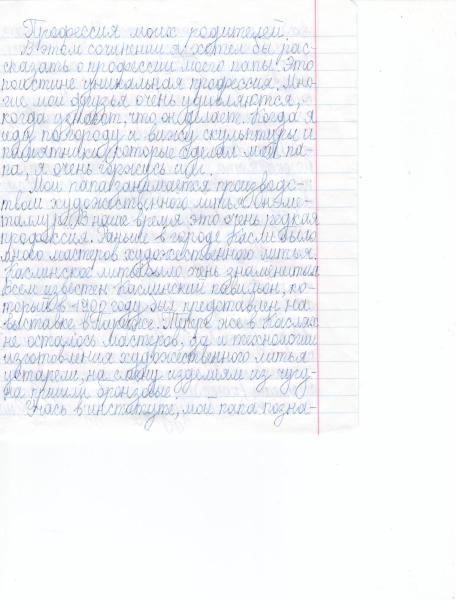 Профессия моих родителей.
В этом сочинении я хотел бы рас-
сказать о профессии моего папы. Это
поистине уникальная профессия. Мно-
гие мои друзья очень удивляются,
когда узнают, что он делает. Когда я
иду по городу и вижу скульптуры и
памятники, которые сделал мой па-
па, я очень горжусь им.
Мой папа занимается производс-
твом художественного литья. Он ме-
таллург. В наше время это очень редкая
профессия. Раньше в городе Касли было
много мастеров художественного литья.
Каслинское литьё было очень знаменитым.
Всем известен Каслинский павильон, ко-
торый в 1900 году был представлен на
выставке в Париже. Теперь же в Каслях
не осталось мастеров, да и технологии
изготовления художественного литья
устарели, на смену изделиям из чугу-
на пришли бронзовые.
Учась в институте, мой папа позна-